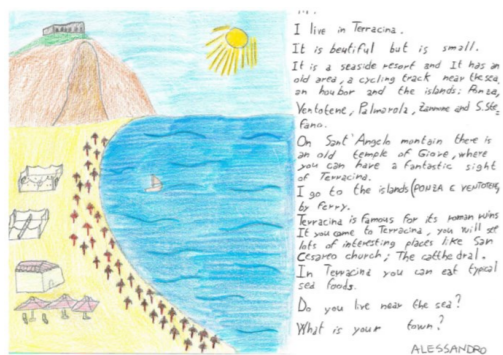 I live in Terracina.
It is beutiful but is small.
It is a seaside resort and It has an
old area, a cycling track near the sea,
an houbor and the islands: Ponza,
Ventotene, Palmarola, Zannone and S.Ste_
fano.
On Sant'Angelo montain there is
an old temple of Giove, where
you can have a fantastic sight
of Terracina.
I go to the islands (PONZA E VENTOTENE)
by ferry.
Terracina is famous for its roman ruins
If you came to Terracina, you will see
lots of interesting places like San
Cesareo church; The catthedral.
In Terracina you can eat typical
sea foods.
Do you live near the sea?
What is your town?
ALESSANDRO